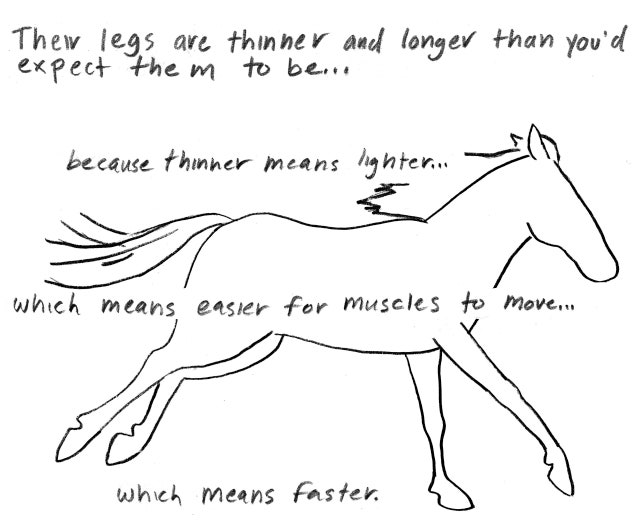 Their legs are thinner and longer than you'd
expect them to be...
because thinner means lighter...
which means easier for muscles to move...
which means faster.